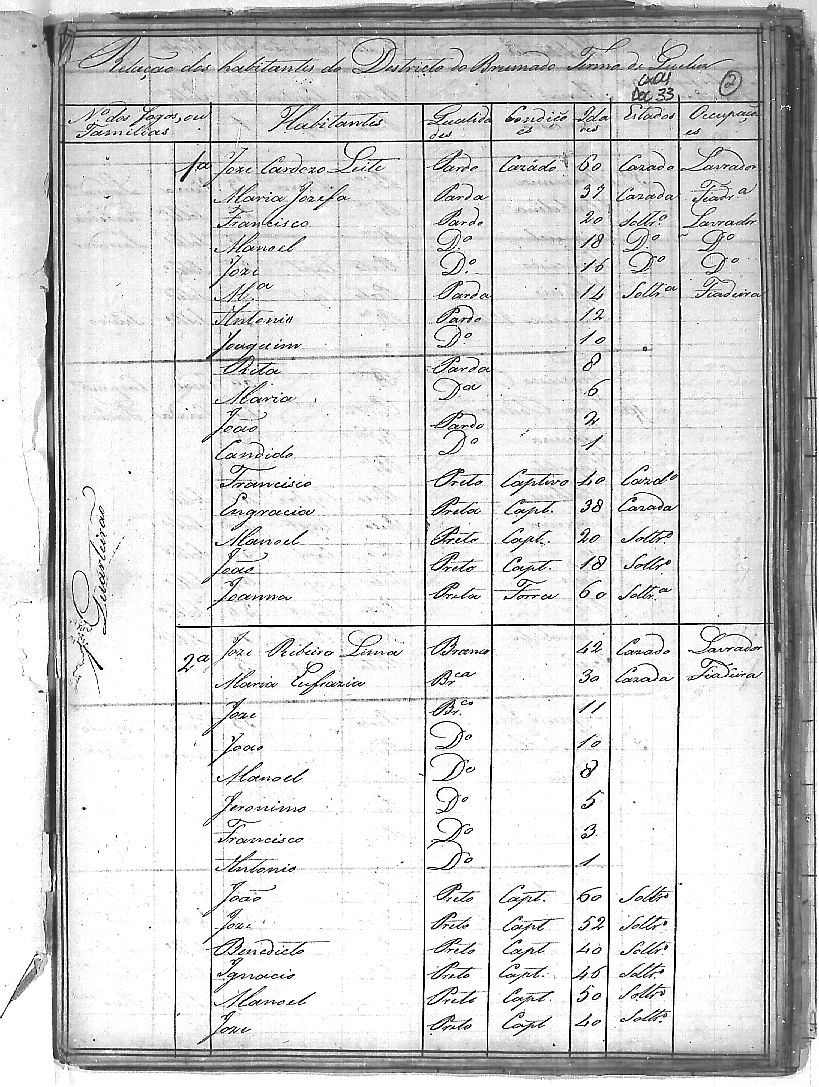 Relação dos habitantes do Districto do Brumado Termo de
2
cx04
Doc 33
Nº dos Fogos, ou Familias Habitantes Qualidades Condições Idades Estados Occupações
1ª Joze Cardozo Leite Pardo Cazádo 60 Cazado Lavrador
Maria Jozefa Parda 37 Cazada Fiadrª
Francisco Pardo 20 Soltrº Lavrador
Manoel Dº 18 Dº Dº
Joze Dº 16 Dº Dº
Mª Parda 14 Soltrª Fiadeira
Antonio Pardo 12
Joaquim Dº 10
Rita Parda 8
Maria Dª 6
João Pardo 2
Candido Dº 1
Francisco Preto Captivo 40 Cazdº
Engracia Preta Capt. 38 Cazada
Manoel Preto Capt. 20 Soltrº
João Preto Capt 18 Soltrº
Joanna Preta Forra 60 Soltrª
Quarteirão
2ª Joze Ribeiro Lima Branco 42 Cazado Lavrador
Maria Eufrazia Brcª 30 Cazada Fiadeira
Joze Br.co 11
João Dº 10
Manoel Dº 8
Jeronimo Dº 5
Francisco Dº 3
Antonio Dº 1
João Preto Capt. 60 Soltrº
Joze Preto Capt 52 Soltrº
Benedicto Preto Capt 40 Soltrº
Ignacio Preto Capt. 46 Soltrº
Manoel Preto Capt. 50 Soltrº
Joze Preto Capt 40 Soltrº